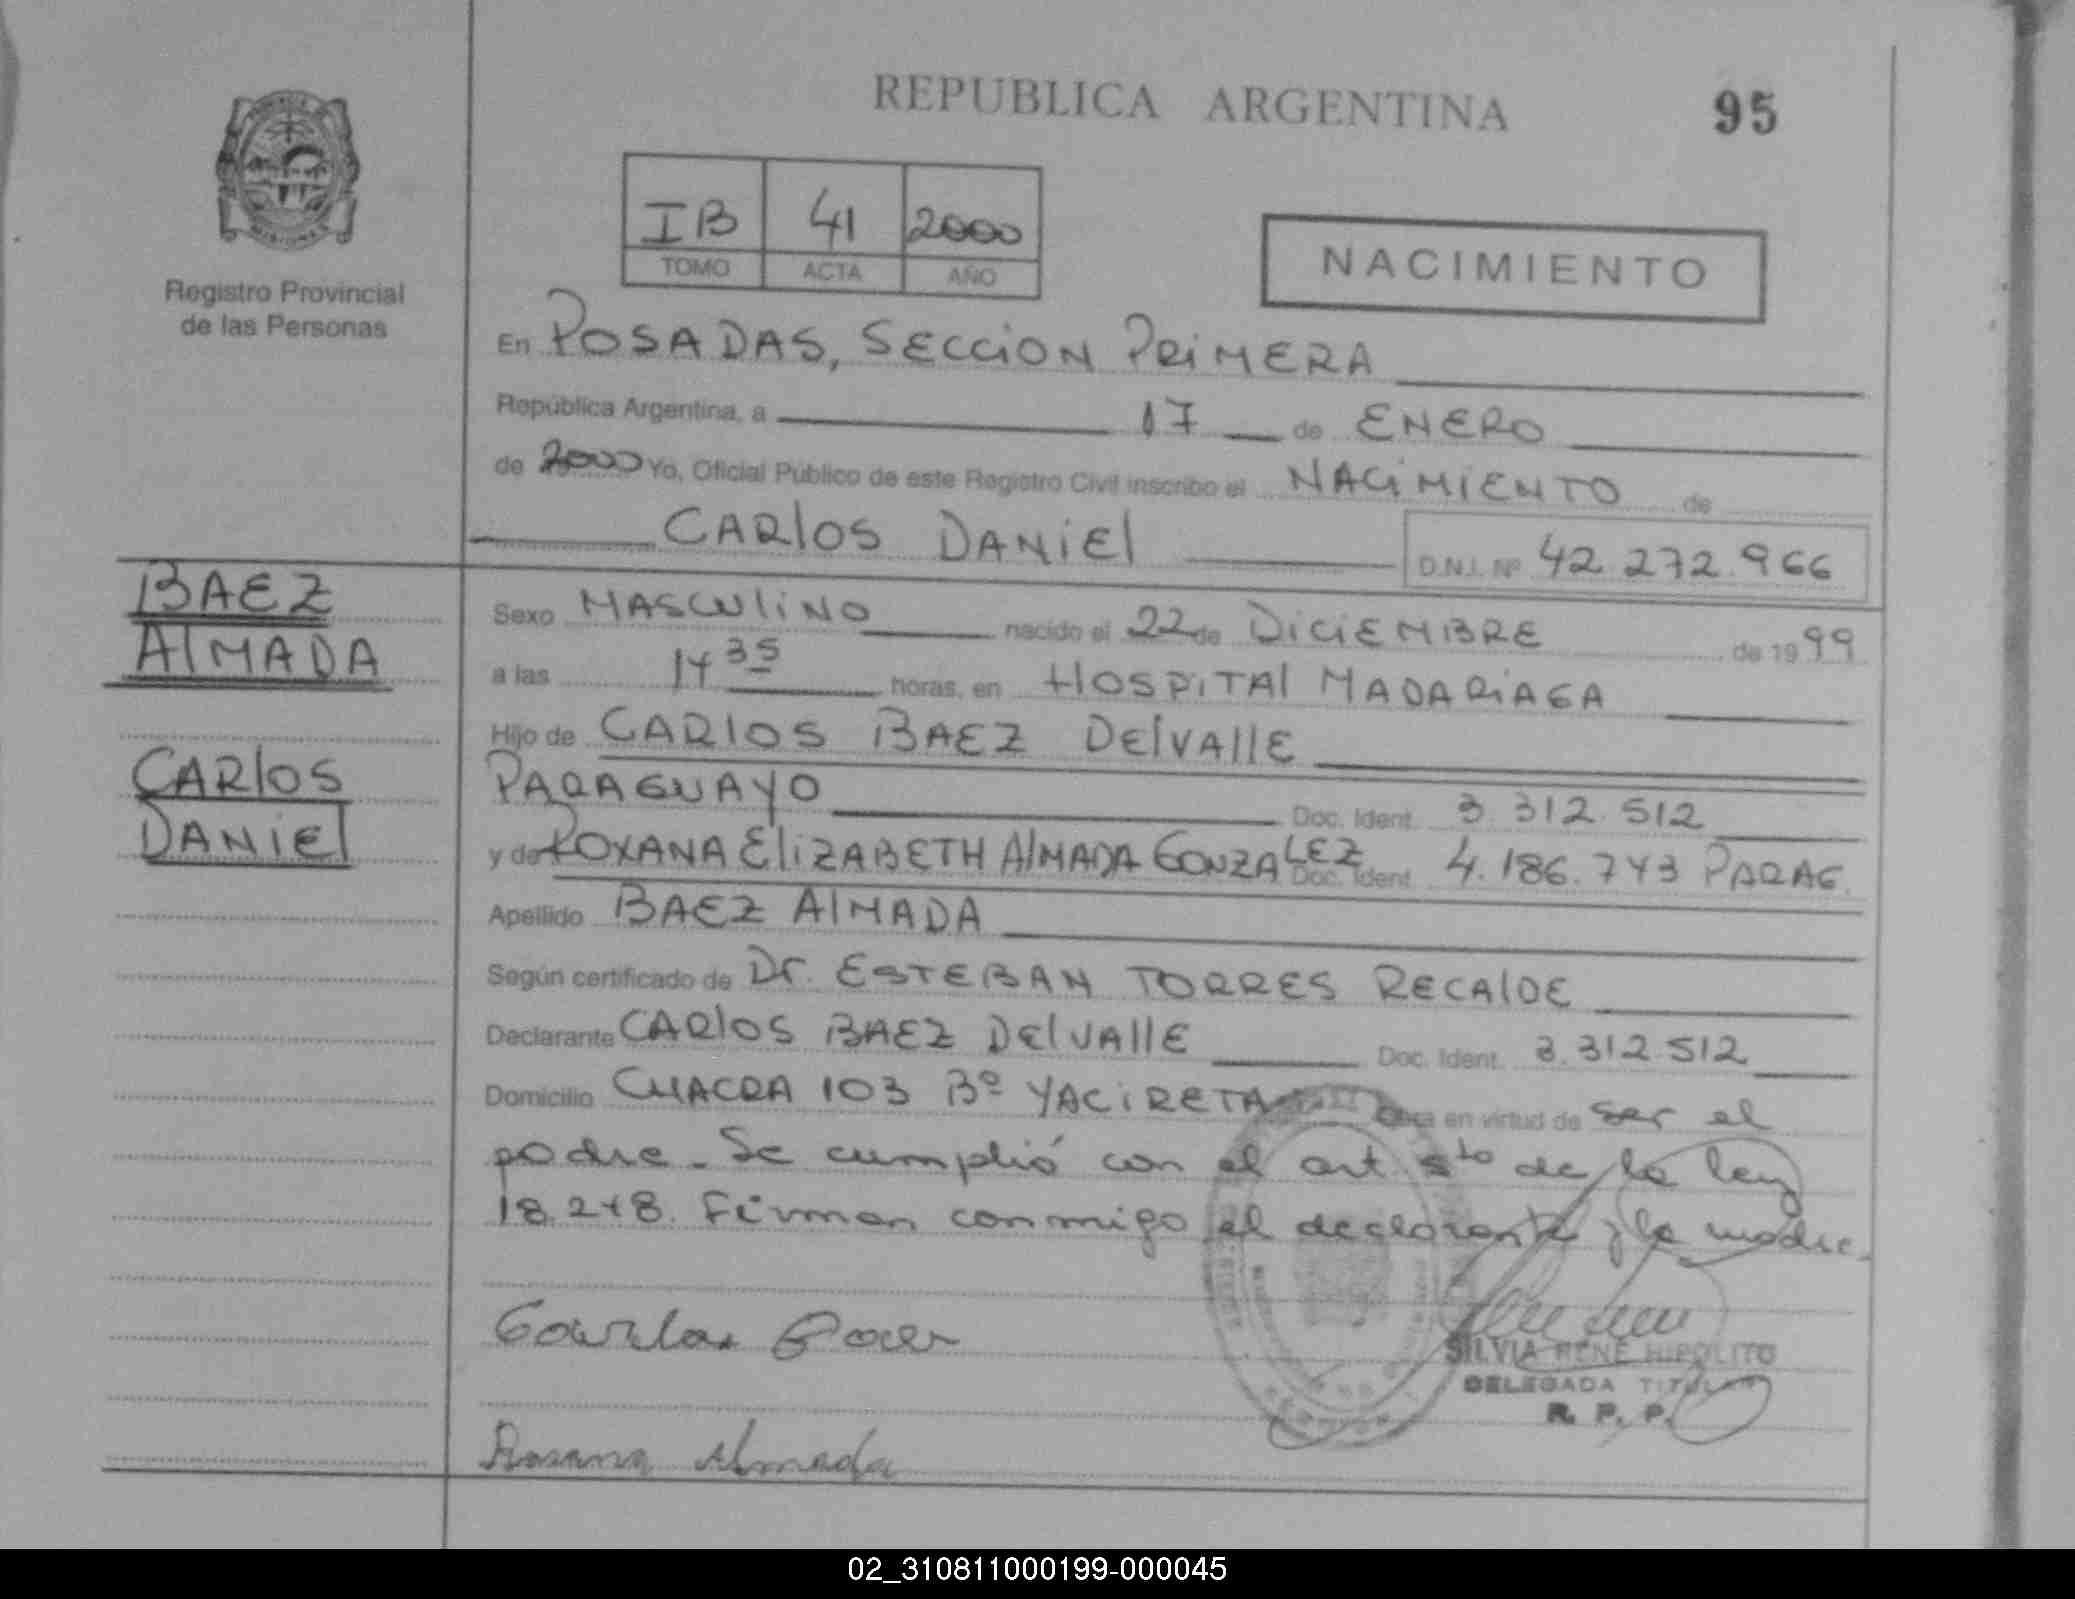 REPUBLICA ARGENTINA
95
IB 41 2000
TOMO ACTA AÑO
NACIMIENTO
Registro Provincial
de las Personas
En POSADAS, SECCION PRIMERA
República Argentina, a 17 de ENERO
de 2000 Yo, Oficial Público de este Registro Civil inscribo el NACIMIENTO de
CARLOS DANIEL D.N.I. Nº 42.272.966
BAEZ
ALMADA
CARLOS
DANIEL
Sexo MASCULINO nacido el 22 de DICIEMBRE de 1999
a las 14 35 horas, en HOSPITAL MADARIAGA
Hijo de CARLOS BAEZ DELVALLE
PARAGUAYO Doc. Ident. 3.312.512
y de ROXANA ELIZABETH ALMADA GONZALEZ Doc. Ident. 4.186.743 PARAG.
Apellido BAEZ ALMADA
Según certificado de Dr. ESTEBAN TORRES RECALDE
Declarante CARLOS BAEZ DELVALLE Doc. Ident. 3.312.512
Domicilio CHACRA 103 Bº YACIRETA Obra en virtud de ser el
padre. Se cumplió con el art 5to de la ley
18.248. Firman conmigo el declarante y la madre.
Carlos Baez
SILVIA RENE HIPOLITO
DELEGADA TITULAR
R. P. P.
Roxana Almada
02_310811000199-000045